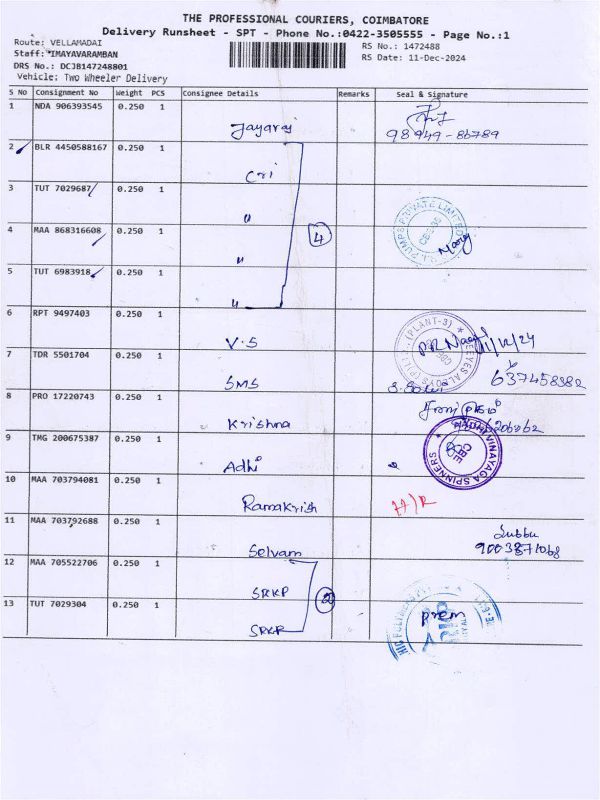 THE PROFESSIONAL COURIERS, COIMBATORE
Delivery Runsheet - SPT - Phone No.:0422-3505555 - Page No.:1
Route: VELLAMADAI
RS No.: 1472488
Staff: *IMAYAVARAMBAN
RS Date: 11-Dec-2024
DRS No.: DCJB147248801
Vehicle: Two Wheeler Delivery
S No Consignment No Weight PCS Consignee Details Remarks Seal & Signature
1 NDA 906393545 0.250 1 Jayaraj
2 BLR 4450588167 0.250 1 Cri
3 TUT 7029687 0.250 1 "
4 MAA 868316608 0.250 1 " 4
5 TUT 6983918 0.250 1 "
6 RPT 9497403 0.250 1 V.S
7 TDR 5501704 0.250 1 SMS
8 PRO 17220743 0.250 1 Krishna
9 TMG 200675387 0.250 1 Adhi VINAYAGA SPINNERS CBE
10 MAA 703794081 0.250 1 Ramakrish
11 MAA 703792688 0.250 1 Selvam Subbu
12 MAA 705522706 0.250 1 SRKP
13 TUT 7029304 0.250 1 SRKP 2 prem